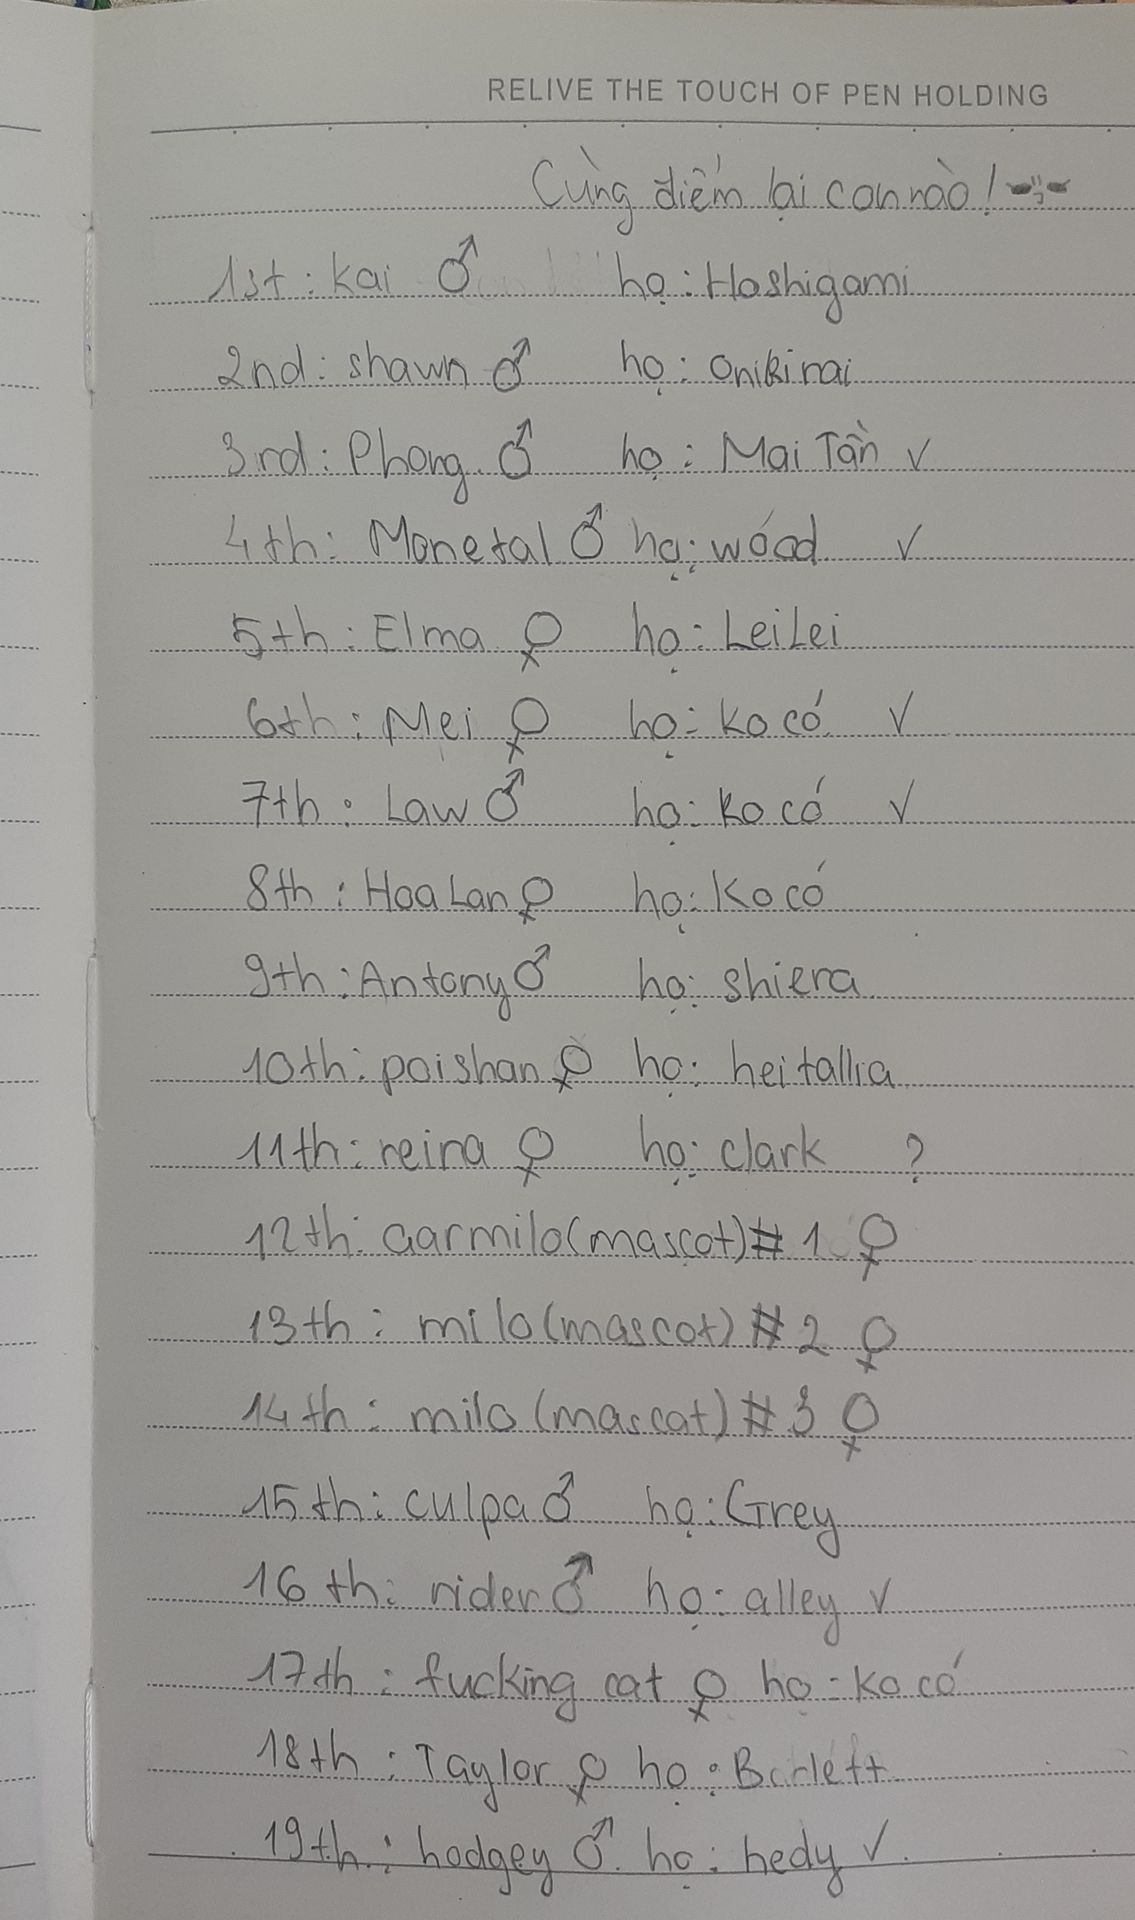 RELIVE THE TOUCH OF PEN HOLDING
Cùng điểm lại con nào!
1st : Kai ♂ họ : Hoshigami
2nd : shawn ♂ họ : Onikirai
3rd : Phong ♂ họ : Mai Tần ✓
4th : Monetal ♂ họ : wood ✓
5th : Elma ♀ họ : LeiLei
6th : Mei ♀ họ : Ko có ✓
7th : Law ♂ họ : Ko có ✓
8th : Hoa Lan ♀ họ : Ko có
9th : Antony ♂ họ : shiera
10th : paishan ♀ họ : heitallia
11th : reina ♀ họ : clark ?
12th : aarmilo (mascot) # 1 ♀
13th : milo (mascot) # 2 ♀
14th : milo (mascot) # 3 ♀
15th : culpa ♂ họ : Grey
16th : rider ♂ họ : alley ✓
17th : fucking cat ♀ họ : Ko có
18th : Taylor ♀ họ : Barlett
19th : hodgey ♂ họ : hedy ✓